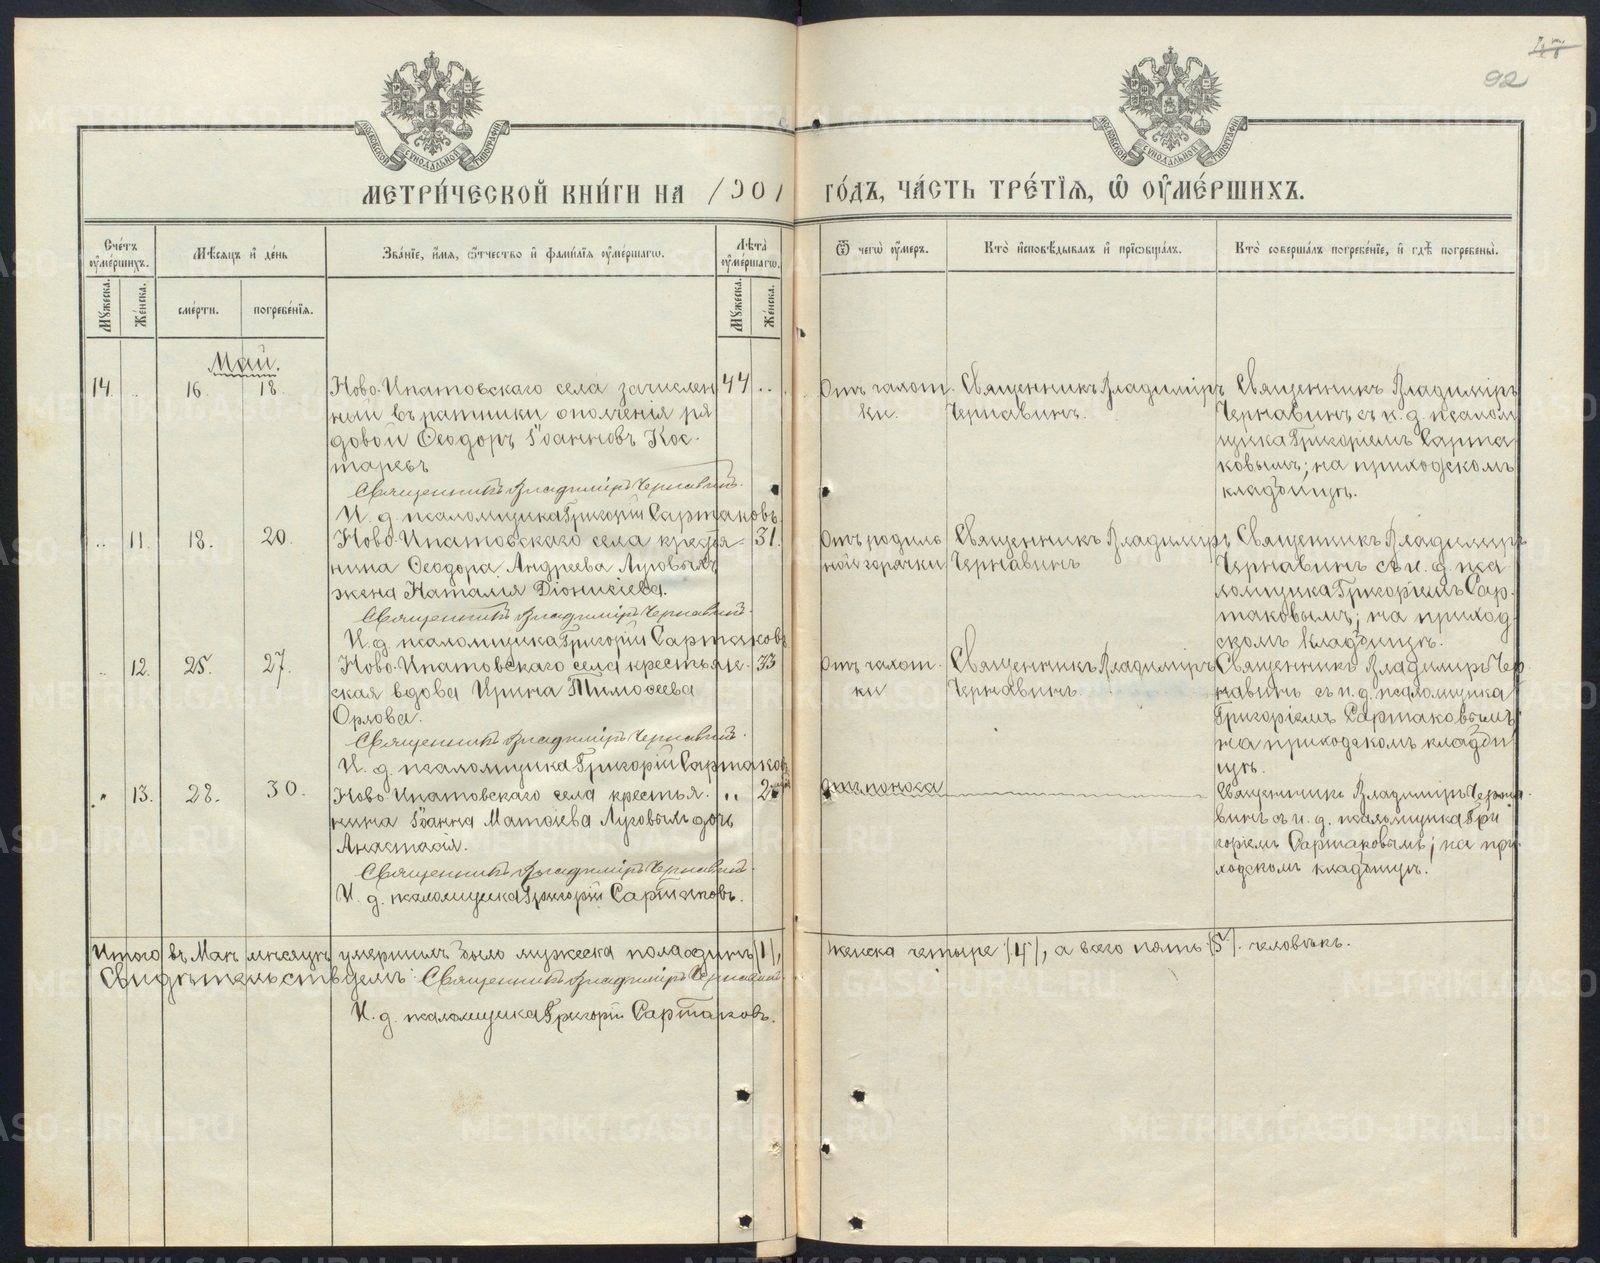 47
92
МОСКОВСКОЙ СѴНОДАЛЬНОЙ ТИПОГРАФІИ
МОСКОВСКОЙ СѴНОДАЛЬНОЙ ТИПОГРАФІИ
МЕТРИ́ЧЕСКОЙ КНИ́ГИ НА 1901 ГО́ДЪ, ЧА́СТЬ ТРЕ́ТІѦ, Ѡ ОУМЕ́РШИХЪ.
Сче́тъ оумершихъ.
Мꙋжеска.
Же́нска.
Мѣсяцъ и де́нь
сме́рти.
погребе́нїѧ.
Зва́нїе, и́мѧ, ѻ́тчество и фами́лїѧ оуме́ршагѡ.
Лѣта̀ оуме́ршагѡ.
Мꙋжеска.
Же́нска.
Ѿ чегѡ̀ оу́меръ.
Кто̀ и҆сповѣ́дывалъ и҆ прїѡбща́лъ.
Кто̀ соверша́лъ погребе́нїе, и҆ гдѣ̀ погребены̀.
Май.
14 .. 16. 18.
Ново-Ипатовскаго села зачислен
ный въ ратники ополченія ря
довой Ѳеодоръ Іоанновъ Кос-
таревъ
44 ..
Священникъ Владиміръ Чернавинъ.
И. д. псаломщика Григорій Сартаковъ.
Отъ чахот
ки.
Священникъ Владиміръ
Чернавинъ.
Священникъ Владиміръ
Чернавинъ съ и. д. псалом
щика Григоріемъ Сарта
ковымъ; на приходскомъ
кладбищѣ.
.. 11. 18. 20.
Ново-Ипатовскаго села крестья-
нина Ѳеодора Андреева Луговыхъ
жена Наталія Діонисіева.
31.
Священникъ Владиміръ Чернавинъ.
И. д. псаломщика Григорій Сартаковъ
Отъ родиль
ной горячки
Священникъ Владиміръ
Чернавинъ
Священникъ Владиміръ
Чернавинъ съ и. д. пса
ломщика Григоріемъ Сар-
таковымъ; на приход
скомъ кладбищѣ.
.. 12. 25. 27.
Ново-Ипатовскаго села крестьян-
ская вдова Ирина Тимоѳеева
Орлова.
33
Священникъ Владиміръ Чернавинъ.
И. д. псаломщика Григорій Сартаков
Отъ чахот
ки
Священникъ Владиміръ
Чернавинъ.
Священникъ Владиміръ Чер
навинъ съ и. д. псаломщика
Григоріемъ Сартаковымъ;
на приходскомъ кладби
щѣ.
.. 13. 28. 30.
Ново-Ипатовскаго села крестья-
нина Іоанна Матѳіева Луговыхъ дочь
Анастасія.
.. 2
Священникъ Владиміръ Чернавинъ.
И. д. псаломщика Григорій Сартаковъ.
Отъ поноса
Священникъ Владиміръ Черна
винъ съ и. д. псаломщика Гри
горіемъ Сартаковымъ; на при
ходскомъ кладбищѣ.
Итого въ Маѣ мѣсяцѣ умершихъ было мужеска пола одинъ (1), женска четыре (4), а всего пять (5) человѣкъ.
Свидѣтельствуемъ: Священникъ Владиміръ Чернавинъ.
И. д. псаломщика Григорій Сартаковъ.
METRIKI.GASO-URAL.RU